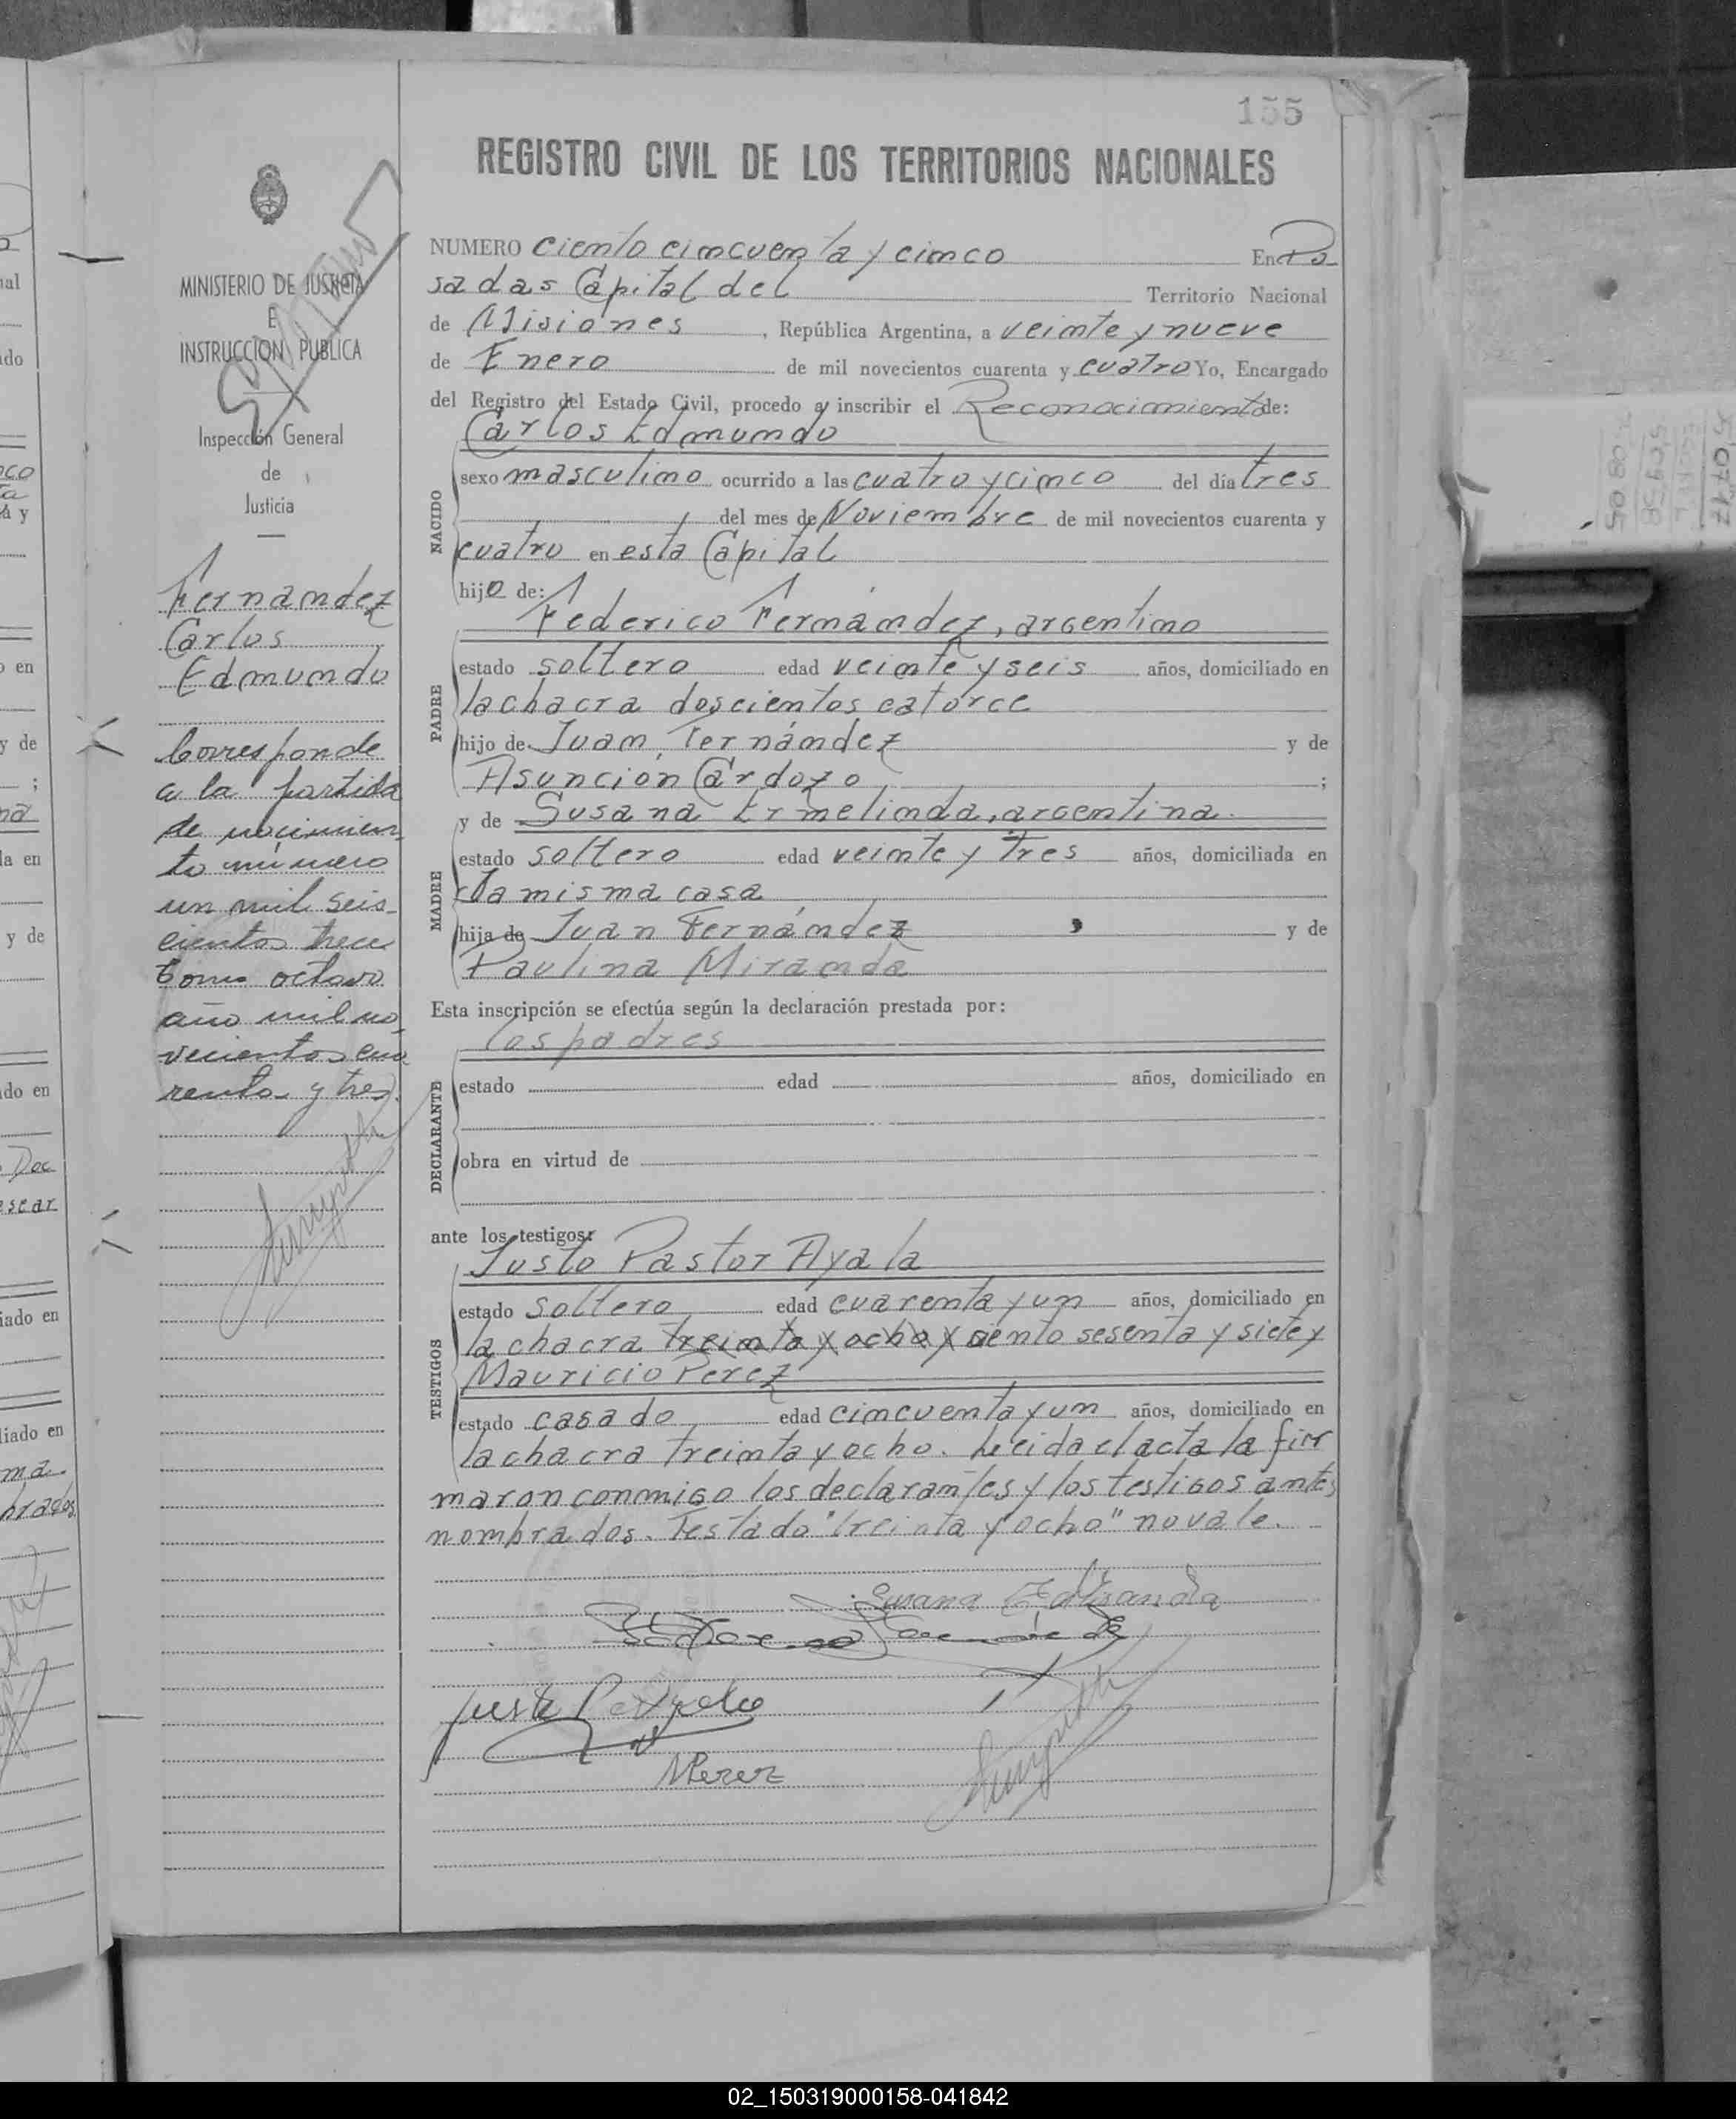 155
REGISTRO CIVIL DE LOS TERRITORIOS NACIONALES
MINISTERIO DE JUSTICIA
E
INSTRUCCION PUBLICA
Inspección General
de
Justicia
Fernandez
Carlos
Edmundo
Corresponde
a la partida
de nacimien
to número
un mil seis-
cientos trece
tomo octavo
año mil no-
vecientos cua
renta y tres.
NUMERO ciento cincuenta y cinco En Po
sadas Capital del Territorio Nacional
de Misiones, República Argentina, a veinte y nueve
de Enero de mil novecientos cuarenta y cuatro Yo, Encargado
del Registro del Estado Civil, procedo a inscribir el Reconocimiento de:
Carlos Edmundo
NACIDO
sexo masculino ocurrido a las cuatro y cinco del día tres
del mes de Noviembre de mil novecientos cuarenta y
cuatro en esta Capital
hijo de:
Federico Fernández, argentino
PADRE
estado soltero edad veinte y seis años, domiciliado en
la chacra doscientos catorce
hijo de Juan Fernández y de
Asunción Cardozo ;
y de Susana Ermelinda, argentina.
MADRE
estado soltero edad veinte y tres años, domiciliada en
la misma casa
hija de Juan Fernández y de
Paulina Miranda
Esta inscripción se efectúa según la declaración prestada por:
los padres
DECLARANTE
estado edad años, domiciliado en
obra en virtud de
ante los testigos:
Justo Pastor Ayala
TESTIGOS
estado soltero edad cuarenta y un años, domiciliado en
la chacra treinta y ocho y ciento sesenta y siete y
Mauricio Perez
estado casado edad cincuenta y un años, domiciliado en
la chacra treinta y ocho. Leida el acta la fir
maron conmigo los declarantes y los testigos antes
nombrados. Testado "treinta y ocho" no vale.
Susana
MPerez
ado en
y de
02_150319000158-041842